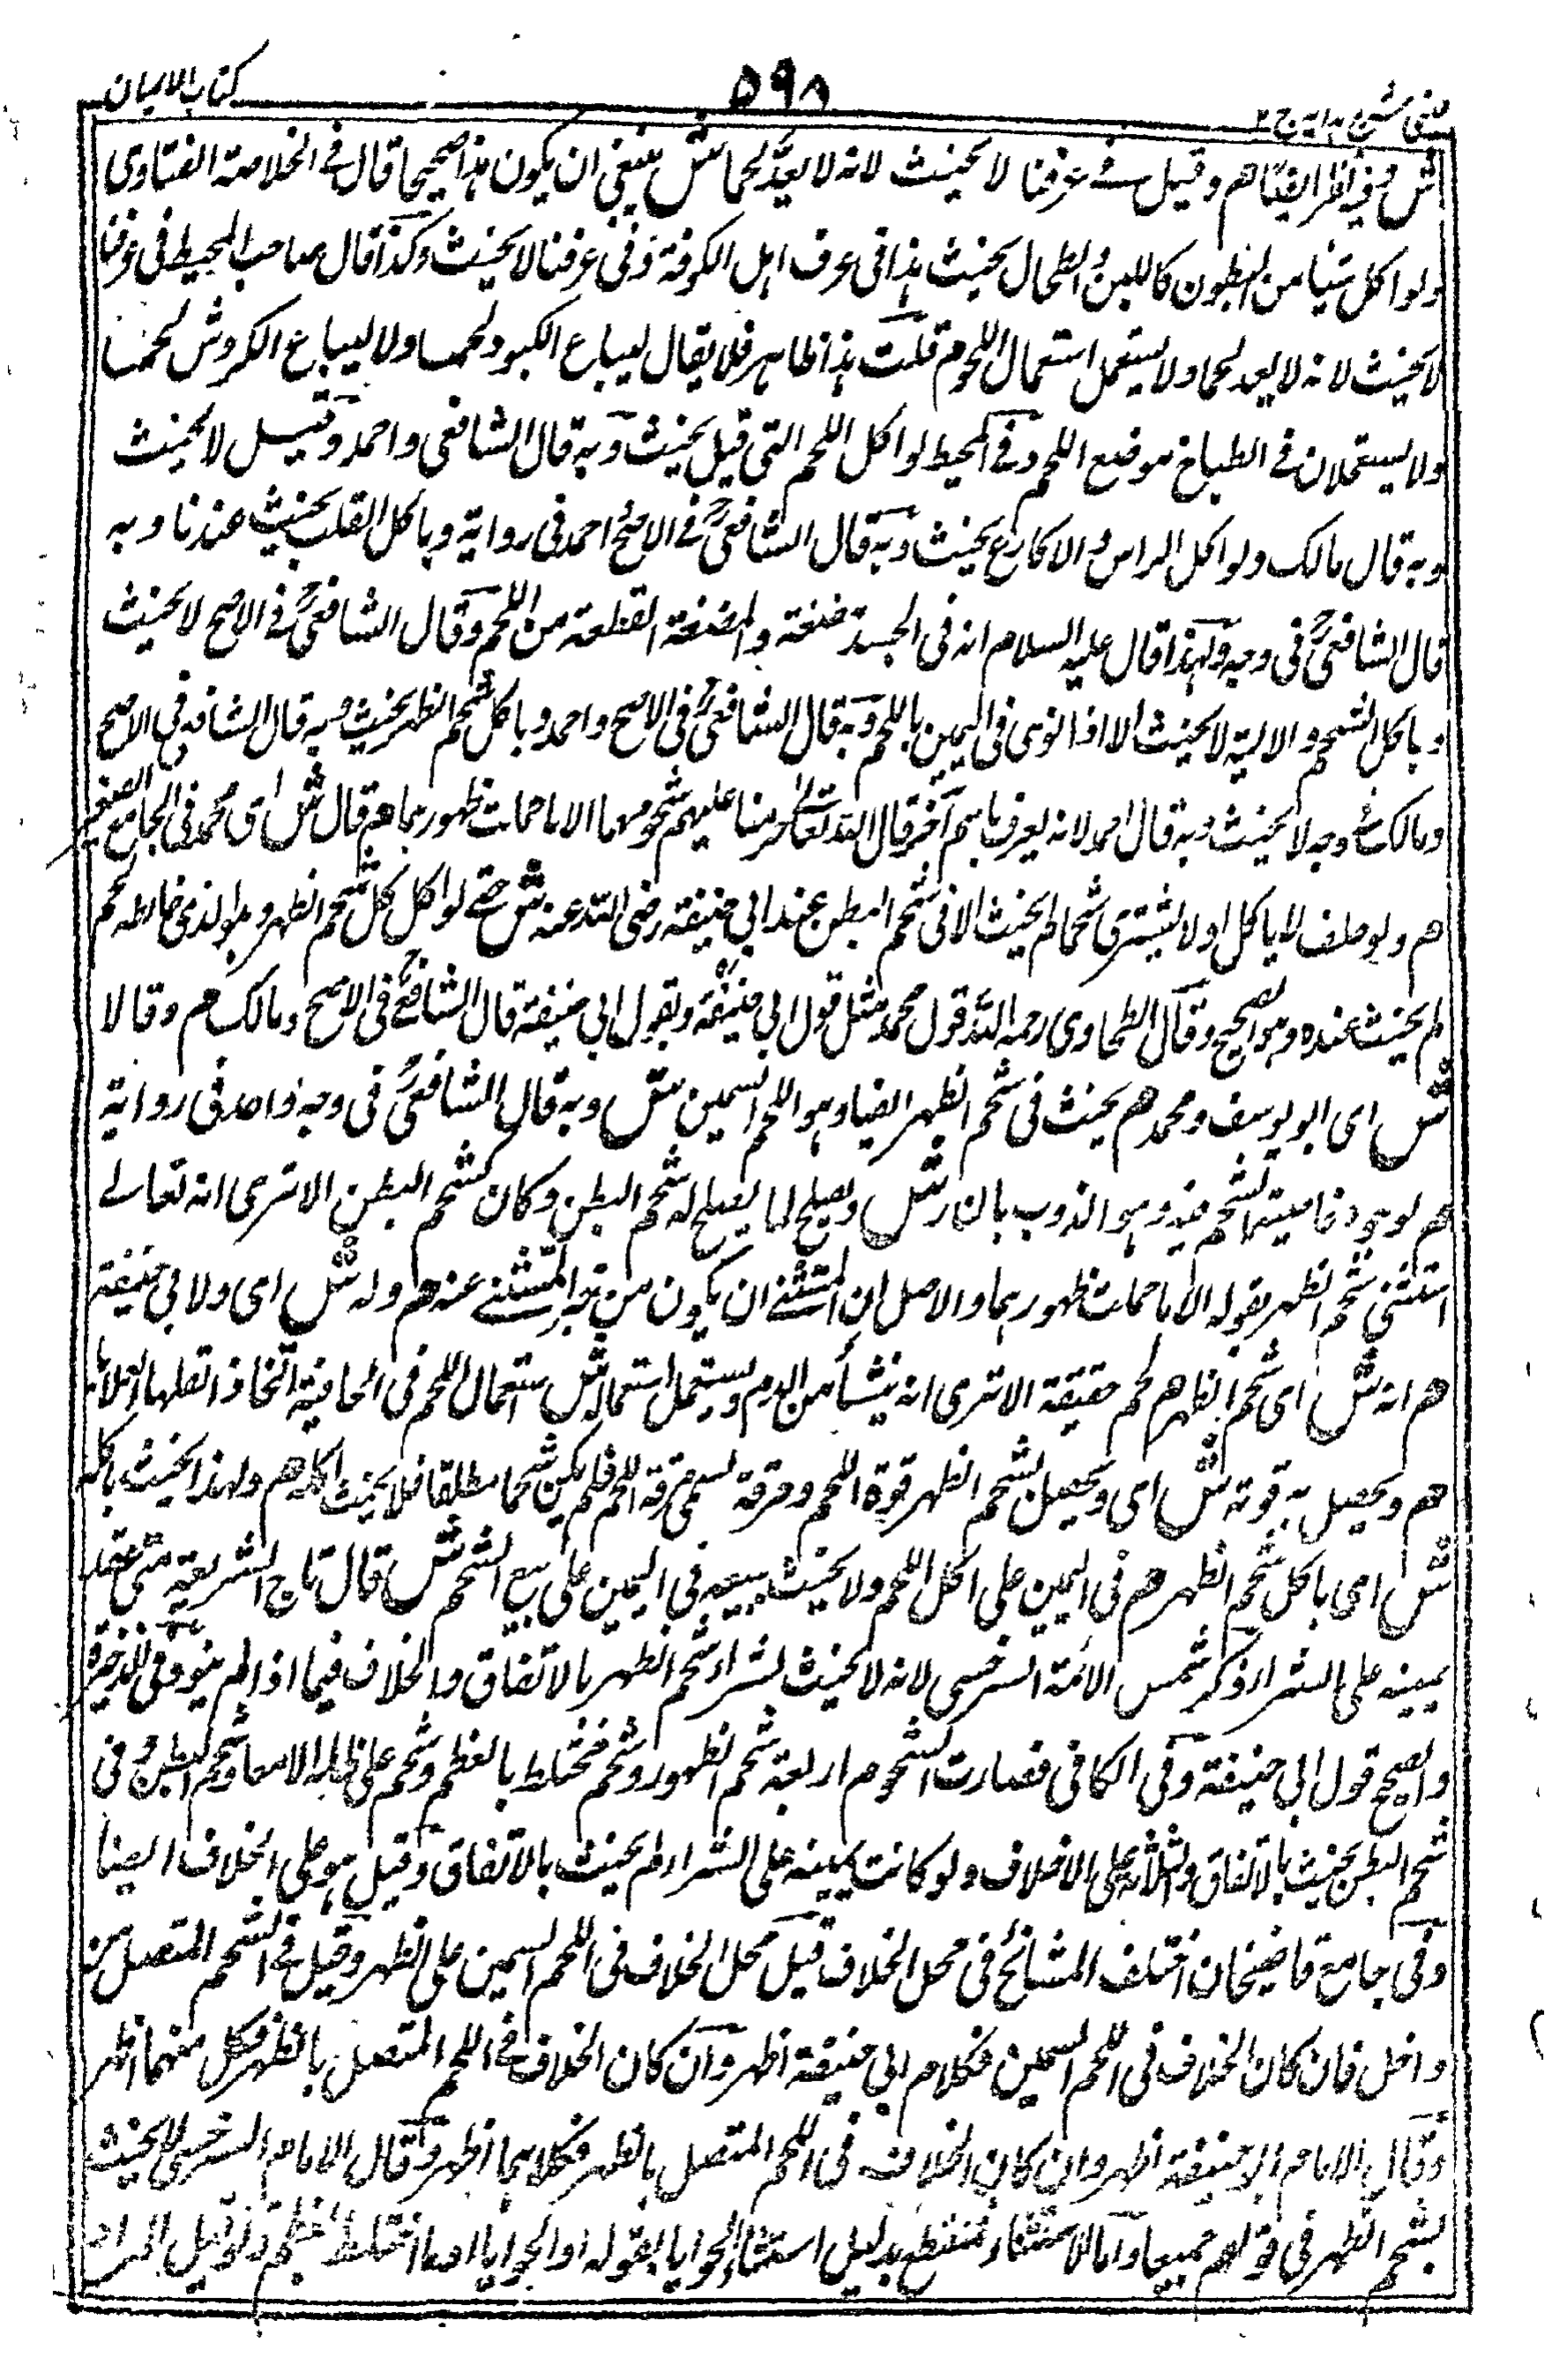 عینی شرح ہدایہ ج ۲
۵۹۸
کتاب الایمان
ش وفیہ نظر ایضا ھم وقیل فی عرفنا لا یحنث لانہ لا یعد لحما ش ینبغی ان یکون ہذا صحیحا قال فی الخلاصۃ الفتاوی
ولو اکل شیئا من البطون کاللبن والطحال یحنث ہذا فی عرف اہل الکوفۃ وفی عرفنا لا یحنث وکذا قال صاحب المحیط فی عرفنا
لا یحنث لانہ لا یعد لحما ولا یستعمل استعمال اللحوم قلت ہذا ظاہر فلا یقال لیباع الکبود لحما ولا لیباع الکروش لحما
ولا یستعملان فی الطباخ موضع اللحم وفی المحیط لو اکل اللحم التی قیل یحنث وبہ قال الشافعی واحمد وقیل لا یحنث
وبہ قال مالک ولو اکل الراس والاکارع یحنث وبہ قال الشافعی فی الاصح احمد فی روایۃ وباکل القلب یحنث عندنا وبہ
قال الشافعی فی وجہ ولہذا قال علیہ السلام انہ فی الجسد مضغۃ والمضغۃ القطعۃ من اللحم وقال الشافعی فی الاصح لا یحنث
وباکل الشحم والالیۃ لا یحنث الا اذا نوی فی الیمین باللحم وبہ قال الشافعی فی الاصح واحمد وباکل شحم الظہر یحنث وبہ قال الشافعی فی الاصح
ومالک فی وجہ لا یحنث وبہ قال احمد لانہ یعرف باسم آخر قال اللہ تعالی حرمنا علیہم شحومہما الا ما حملت ظہورہما ھم قال ش ای محمد فی الجامع الصغیر
ھم ولو حلف لا یاکل او لا یشتری شحما لم یحنث الا فی شحم البطن عند ابی حنیفۃ رضی اللہ عنہ ش حتی لو اکل کل شحم الظہر وہو الذی خالطہ لحم
لم یحنث عندہ وہو الصحیح وقال الطحاوی رحمہ اللہ قول محمد مثل قول ابی حنیفۃ وبقول ابی حنیفۃ قال الشافعی فی الاصح ومالک ھم وقالا
ش ای ابو یوسف ومحمد ھم یحنث فی شحم الظہر ایضا وہو اللحم السمین ش وبہ قال الشافعی فی وجہ واحمد فی روایۃ
ھم لوجود خاصیۃ الشحم فیہ وہو الذوب بالنار ش ویصلح لما یصلح لہ شحم البطن وکان کشحم البطن الا تری انہ تعالی
استثنی شحم الظہر بقولہ الا ما حملت ظہورہما والاصل ان المستثنی ان یکون من جنس المستثنی عنہ ھم ولہ ش ای ولابی حنیفۃ
ھم انہ ش ای شحم الظہر ھم لحم حقیقۃ الا تری انہ ینشأ من الدم ویستعمل استعمالہ ش استعمال اللحم فی اتخاذ
ھم ویحصل بہ قوتہ ش ای ویحصل بشحم الظہر قوۃ اللحم ومرقۃ تسمی مرقۃ اللحم فلم یکن شحما مطلقا فلا یحنث باکلہ ھم ولہذا یحنث باکلہ
ش ای باکل شحم الظہر ھم فی الیمین علی اکل اللحم ولا یحنث ببیعہ فی الیمین علی بیع الشحم ش قال تاج الشریعۃ متی عقد
یمینہ علی الشراء ذکر شمس الائمۃ السرخسی لانہ لا یحنث بشراء شحم الظہر بالاتفاق والخلاف فیما اذا لم ینو وفی الذخیرۃ
والصحیح قول ابی حنیفۃ وفی الکافی فصارت الشحوم اربعۃ شحم الظہور وشحم مختلط بالعظم وشحم علی ظاہر الامعاء وشحم البطن وفی
شحم البطن یحنث بالاتفاق والثلاثۃ علی الاختلاف ولو کانت یمینہ علی الشراء لم یحنث بالاتفاق وقیل ہو علی الخلاف ایضا
وفی جامع قاضیخان اختلف المشائخ فی محل الخلاف قیل محل الخلاف فی اللحم السمین علی الظہر وقیل فی الشحم المتصل من
داخل فان کان الخلاف فی اللحم السمین فکلام ابی حنیفۃ اظہر وان کان الخلاف فی اللحم المتصل بالظہر فکل منہما اظہر
وقال الامام ابو حنیفۃ اظہر وان کان الخلاف فی اللحم المتصل بالظہر فکلامہما اظہر وقال الامام السرخسی لا یحنث
بشحم الظہر فی قولہم جمیعا واما الاستثناء فمنقطع بدلیل استثناء الحوایا بقولہ او الحوایا او ما اختلط بعظم وتوقیل المراد